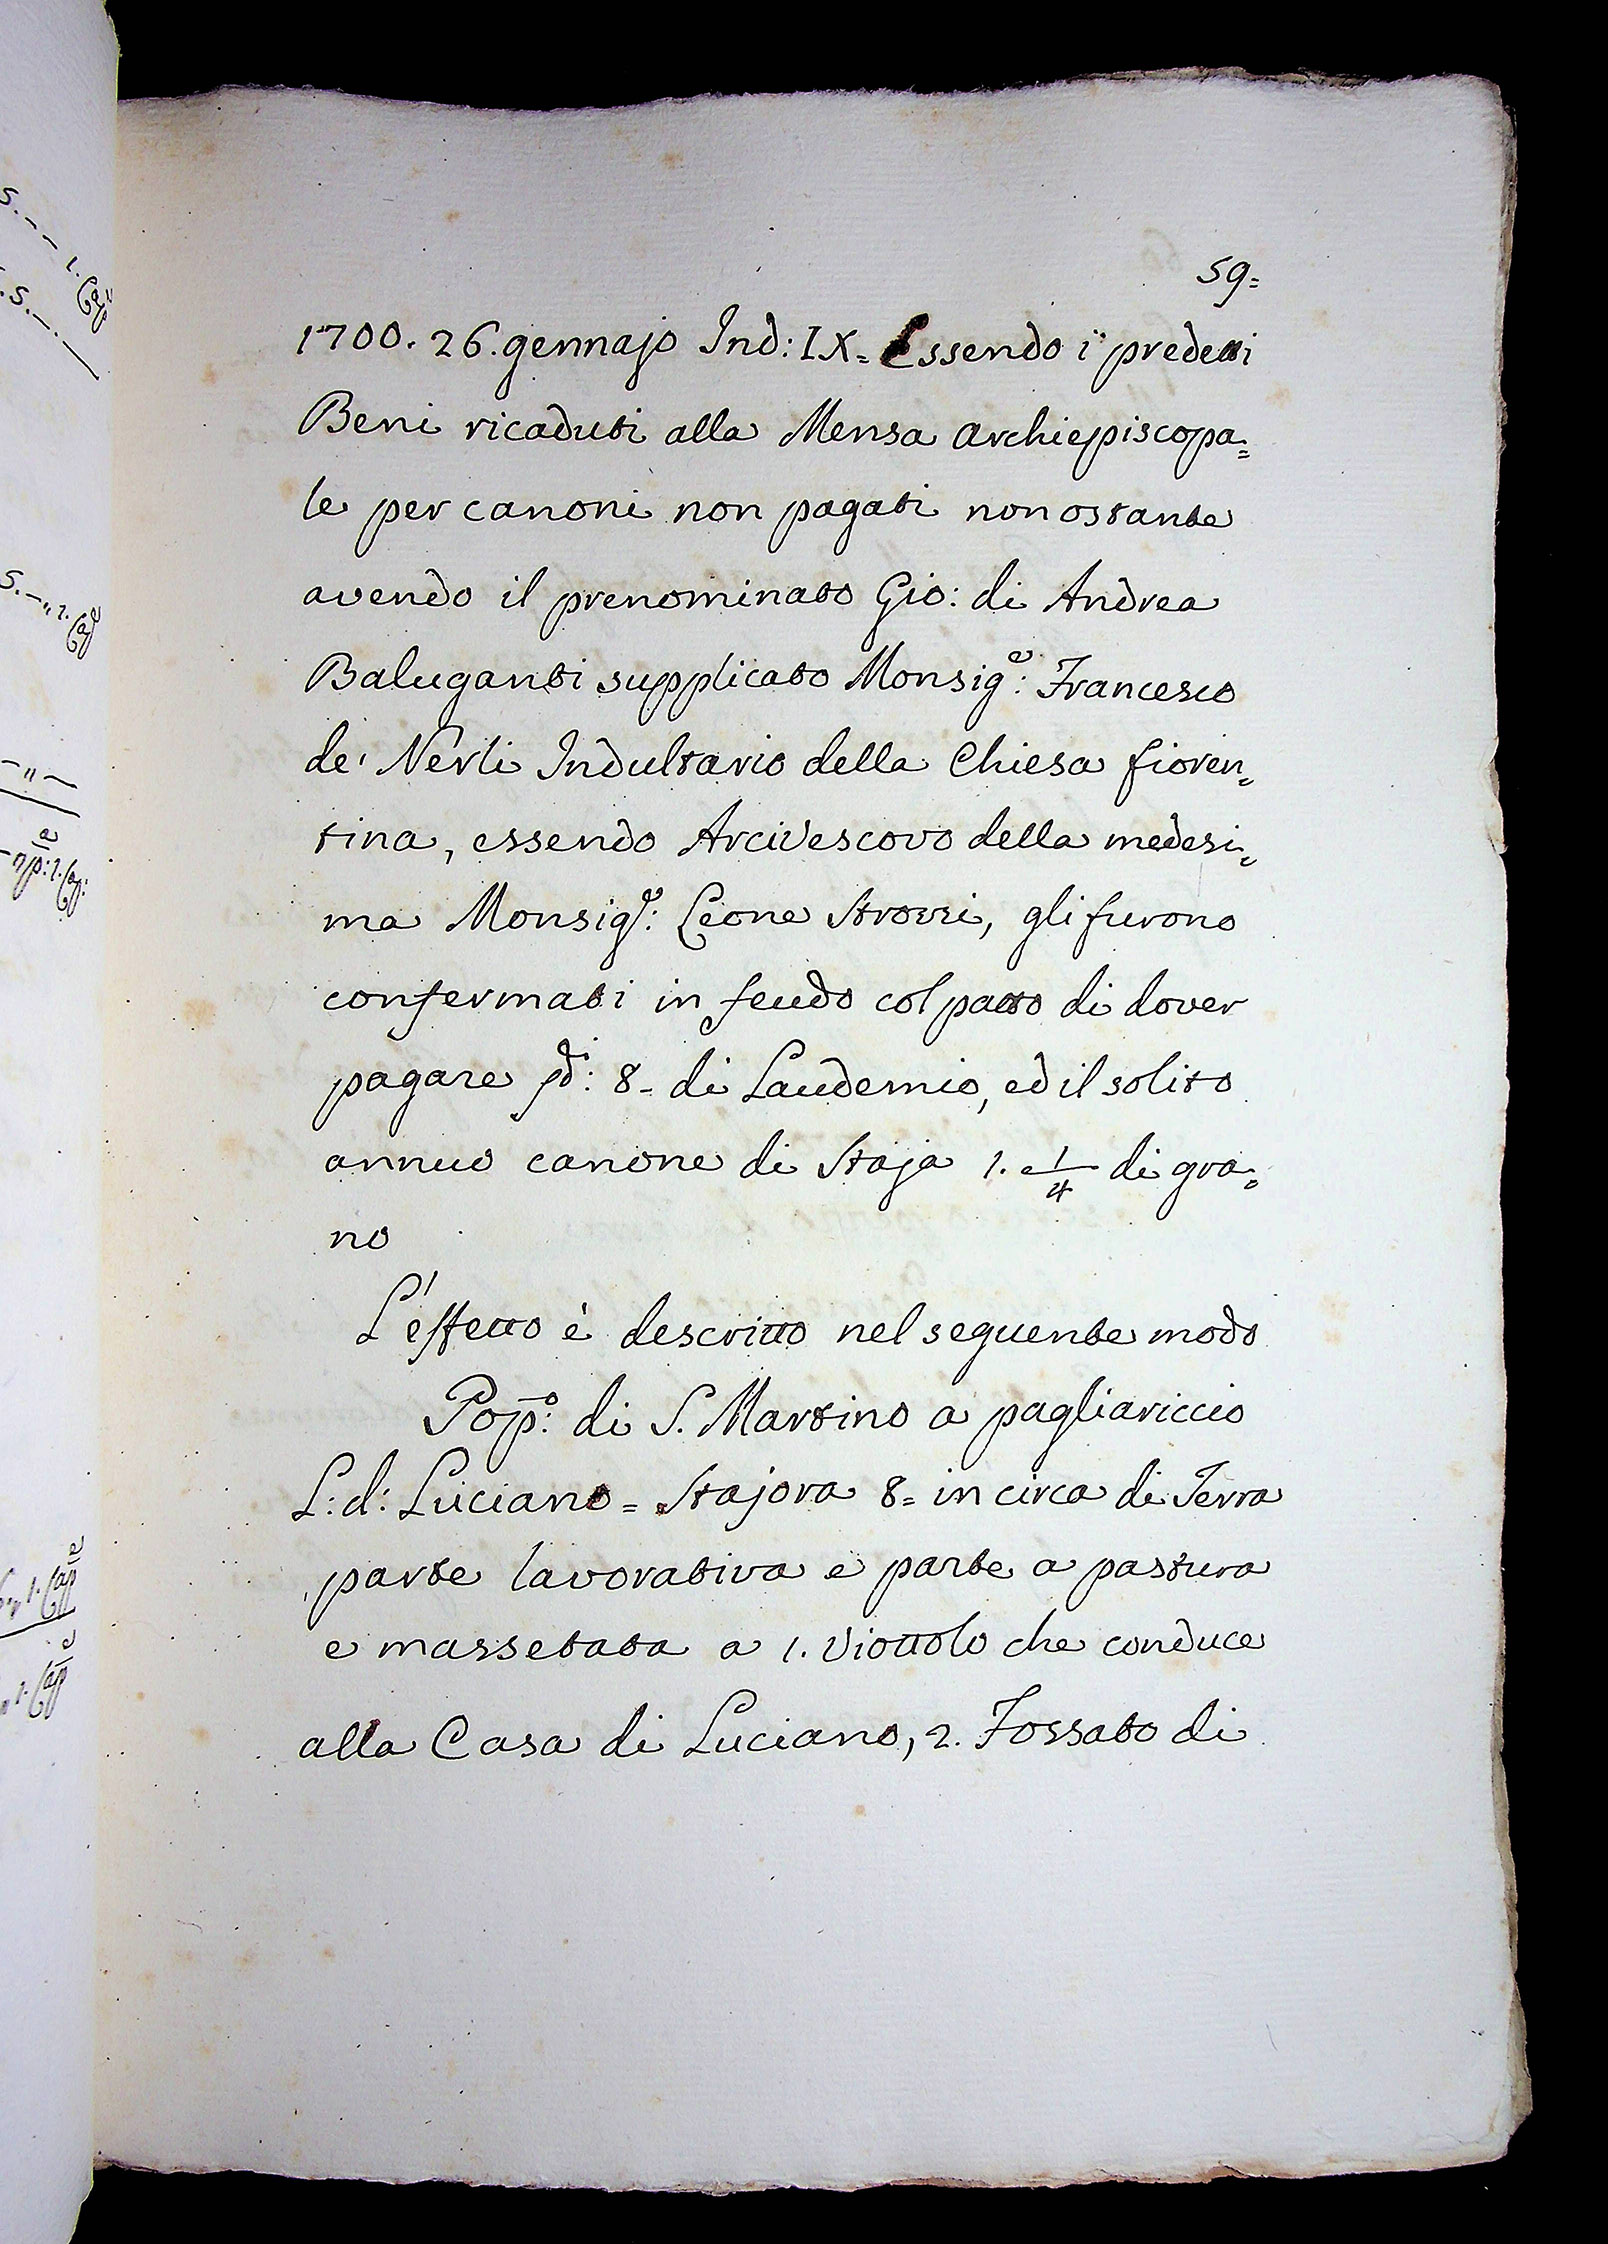 59=
1700. 26. gennajo Ind: IX= Essendo i predetti
Beni ricaduti alla Mensa Archiepiscopa=
le per canoni non pagati nonostante
avendo il prenominato Gio: di Andrea
Baluganti supplicato Monsig.e: Francesco
de' Nerli Indultario della Chiesa fioren=
tina, essendo Arcivescovo della medesi=
ma Monsig.e: Leone Strozzi, gli furono
confermati in feudo col patto di dover
pagare 8- di Laudemio, ed il solito
annuo canone di Staja 1. e 1/4 di gra=
no
L'effetto è descritto nel seguente modo
Pop.o: di S. Martino a pagliariccio
L: d: Luciano= Stajora 8= in circa di Terra
parte lavorativa e parte a pastura
e massetata a 1. Viottolo che conduce
alla Casa di Luciano, 2. Fossato di